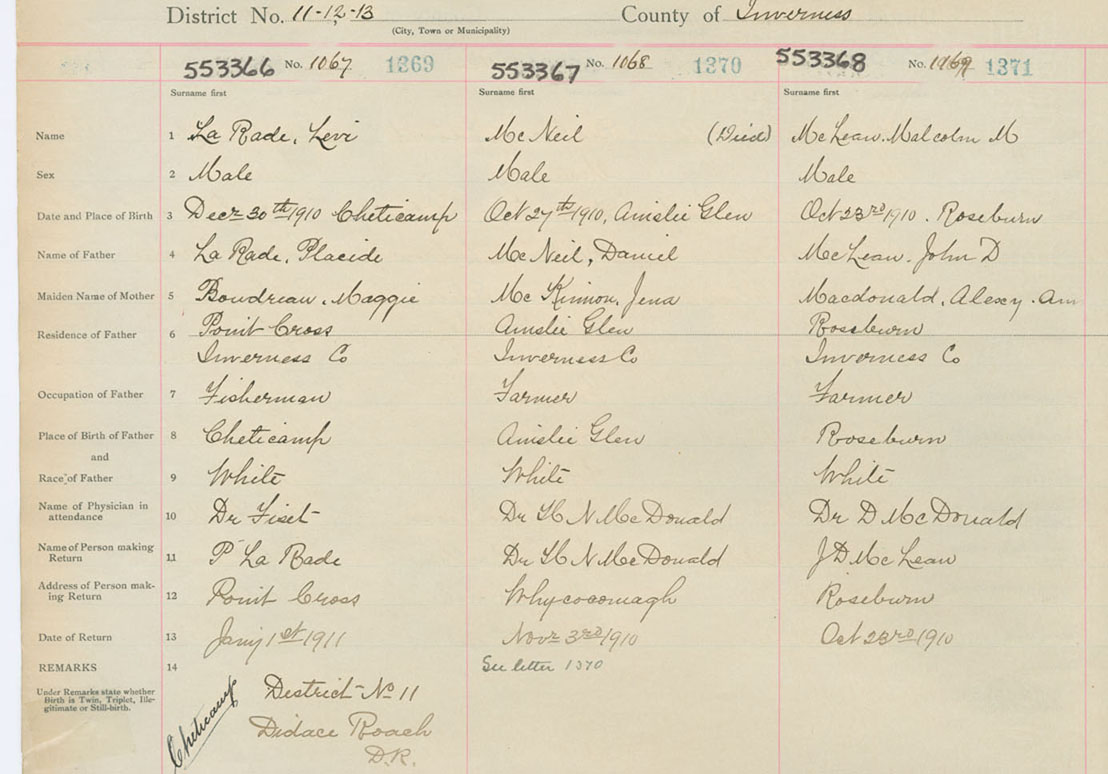 District No. 11-12-13 County of Inverness
(City, Town or Municipality)
553366 No. 1067 1369 553367 No. 1068 1370 553368 No. 1069 1371
Surname first Surname first Surname first
Name 1 La Rade, Levi McNeil (Died) McLean. Malcolm M
Sex 2 Male Male Male
Date and Place of Birth 3 Decr 30th 1910 Cheticamp Oct 27th 1910, Ainslie Glen Oct 23rd 1910. Roseburn
Name of Father 4 La Rade, Placide McNeil, Daniel McLean. John D
Maiden Name of Mother 5 Boudreau, Maggie McKinnon, Jena Macdonald, Alexy. Ann
Residence of Father 6 Point Cross Ainslie Glen Roseburn
Inverness Co Inverness Co Inverness Co
Occupation of Father 7 Fisherman Farmer Farmer
Place of Birth of Father 8 Cheticamp Ainslie Glen Roseburn
and
Race of Father 9 White White White
Name of Physician in attendance 10 Dr Fiset Dr H N McDonald Dr D McDonald
Name of Person making Return 11 P La Rade Dr H N McDonald J D McLean
Address of Person making Return 12 Point Cross Whycocomagh Roseburn
Date of Return 13 Jany 1st 1911 Novr 3rd 1910 Oct 23rd 1910
REMARKS 14 See letter 1370
Under Remarks state whether
Birth is Twin, Triplet, Ille-
gitimate or Still-birth.
Cheticamp
District No 11
Didace Roach
D.R.